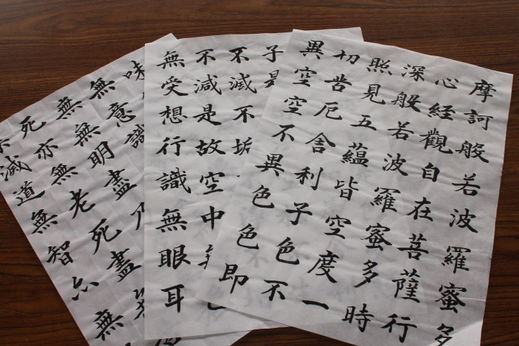 摩訶般若波羅蜜多
心經觀自在菩薩行
深般若波羅蜜多時
照見五蘊皆空度一
切苦厄舍利子色不
異空空不異色色即
子
不滅不垢
不減是故空中
無受想行識無眼耳
味
無意識
無無明盡乃
死亦無老死盡無
滅道無智亦無